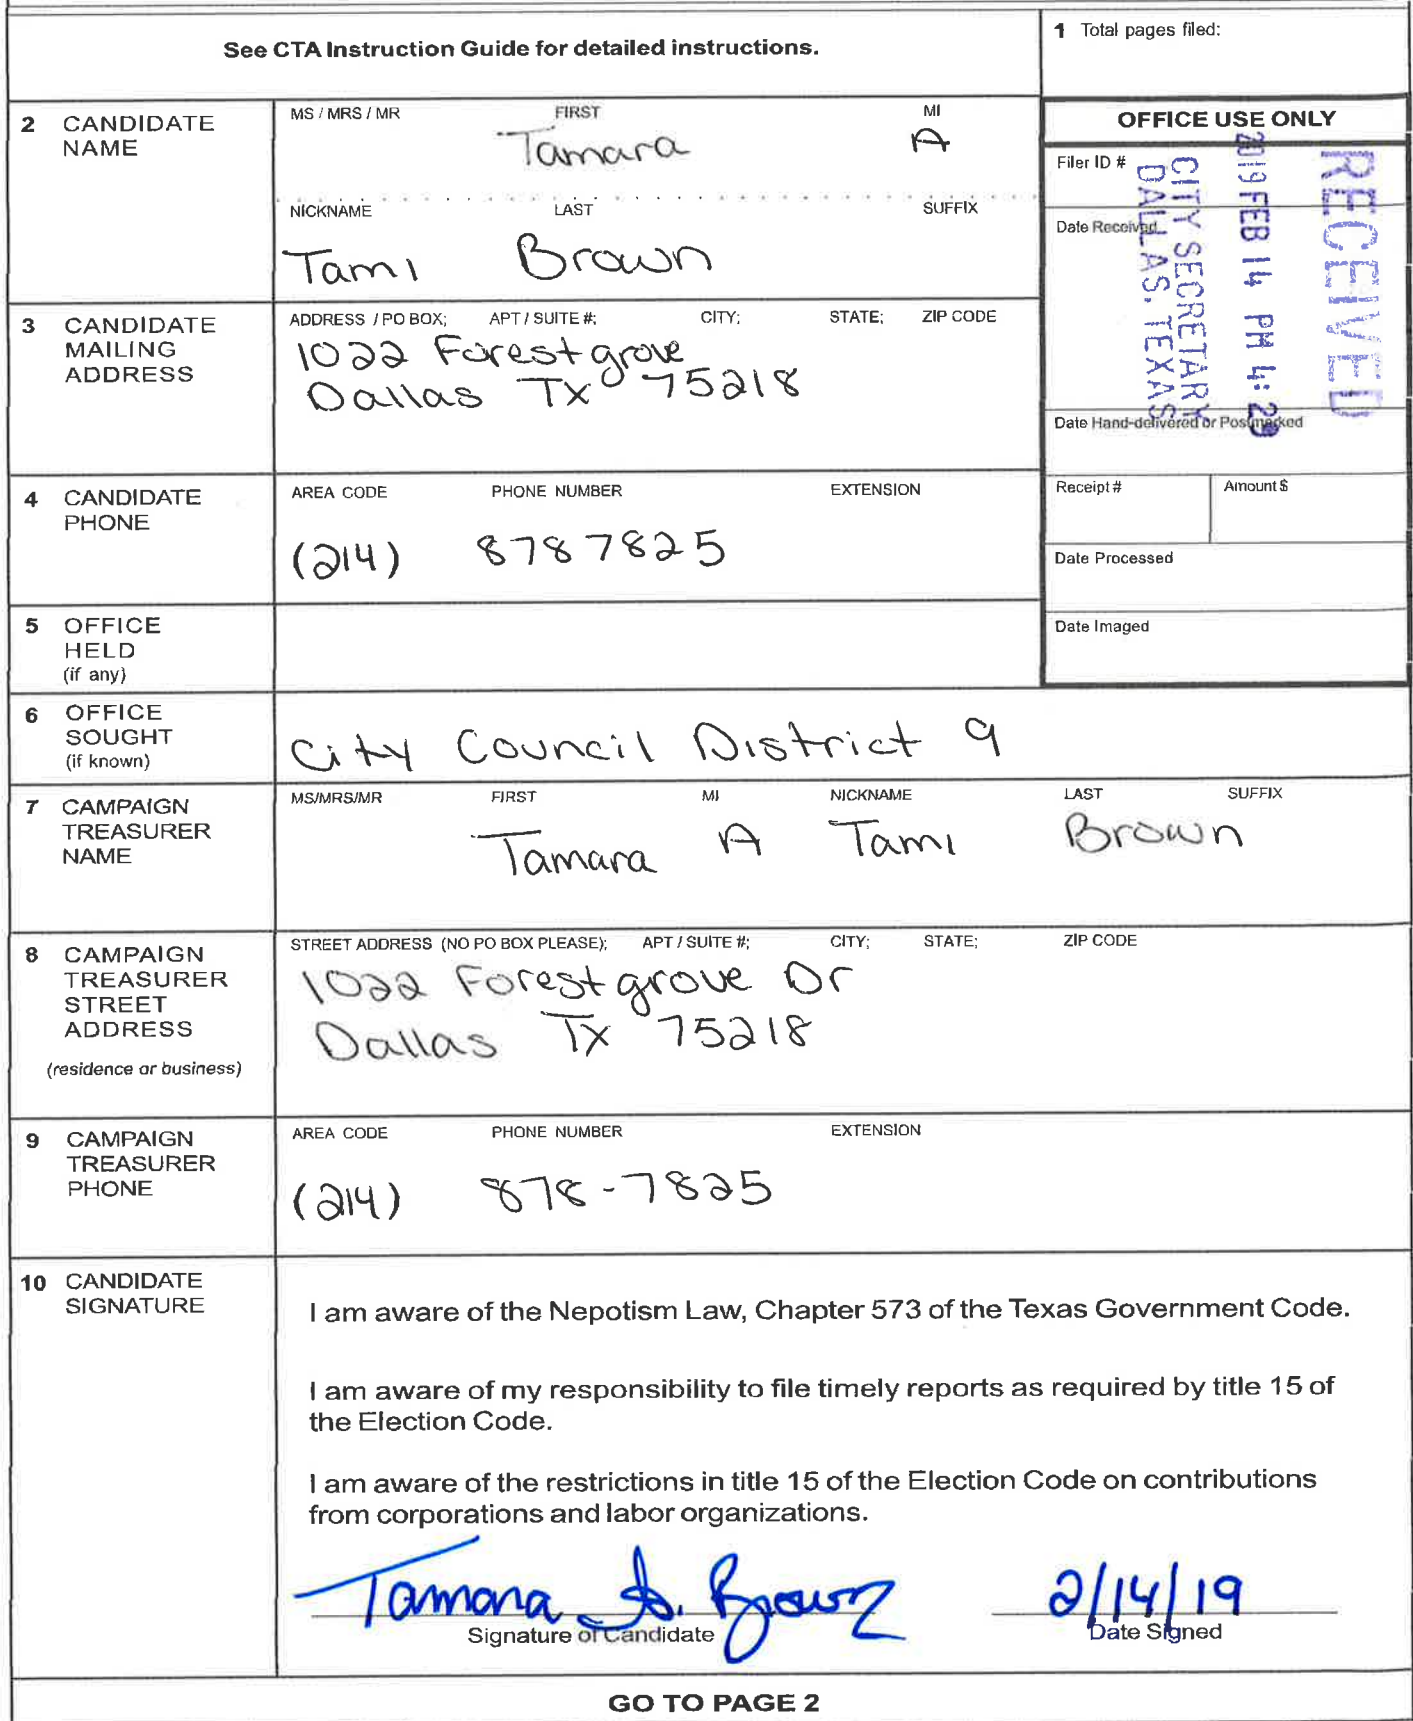 See CTA Instruction Guide for detailed instructions.
1 Total pages filed:
2 CANDIDATE NAME
MS / MRS / MR FIRST MI
Tamara A
NICKNAME LAST SUFFIX
Tami Brown
OFFICE USE ONLY
Filer ID #
Date Received
RECEIVED
2019 FEB 14 PM 4:
CITY SECRETARY
DALLAS, TEXAS
Date Hand-delivered or Postmarked
Receipt # Amount $
Date Processed
Date Imaged
3 CANDIDATE MAILING ADDRESS
ADDRESS / PO BOX; APT / SUITE #; CITY; STATE; ZIP CODE
1022 Forestgrove
Dallas Tx 75218
4 CANDIDATE PHONE
AREA CODE PHONE NUMBER EXTENSION
(214) 8787825
5 OFFICE HELD
(if any)
6 OFFICE SOUGHT
(if known)
City Council District 9
7 CAMPAIGN TREASURER NAME
MS/MRS/MR FIRST MI NICKNAME LAST SUFFIX
Tamara A Tami Brown
8 CAMPAIGN TREASURER STREET ADDRESS
(residence or business)
STREET ADDRESS (NO PO BOX PLEASE); APT / SUITE #; CITY; STATE; ZIP CODE
1022 Forestgrove Dr
Dallas Tx 75218
9 CAMPAIGN TREASURER PHONE
AREA CODE PHONE NUMBER EXTENSION
(214) 878-7825
10 CANDIDATE SIGNATURE
I am aware of the Nepotism Law, Chapter 573 of the Texas Government Code.
I am aware of my responsibility to file timely reports as required by title 15 of
the Election Code.
I am aware of the restrictions in title 15 of the Election Code on contributions
from corporations and labor organizations.
Tamara A. Brown 2/14/19
Signature of Candidate Date Signed
GO TO PAGE 2